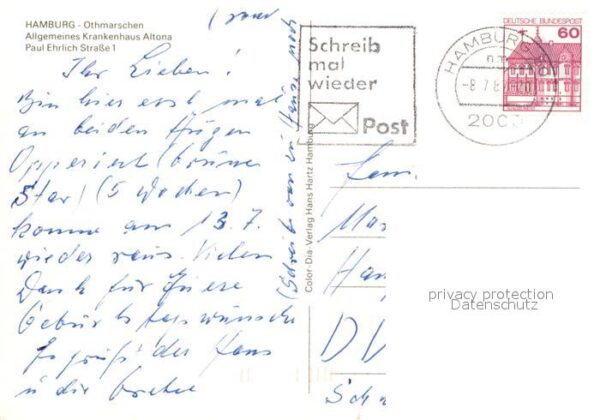 HAMBURG - Othmarschen
Allgemeines Krankenhaus Altona
Paul Ehrlich Straße 1
Ihr Lieben!
Bin hier erst mal
an beiden Augen
Opperiert (
Star) (5 Wochen)
komme am 13.7.
wieder raus. Vielen
Dank für Euere
Geburtstagswünsche
Es grüßt der Hans
u die Grete
(Schreibe von zu Hause noch
Color-Dia-Verlag Hans Hartz Hamburg
Schreib
mal
wieder
Post
HAMBURG
-8.7.8
2000
DEUTSCHE BUNDESPOST
60
Fam.
Ha
D
privacy protection
Datenschutz